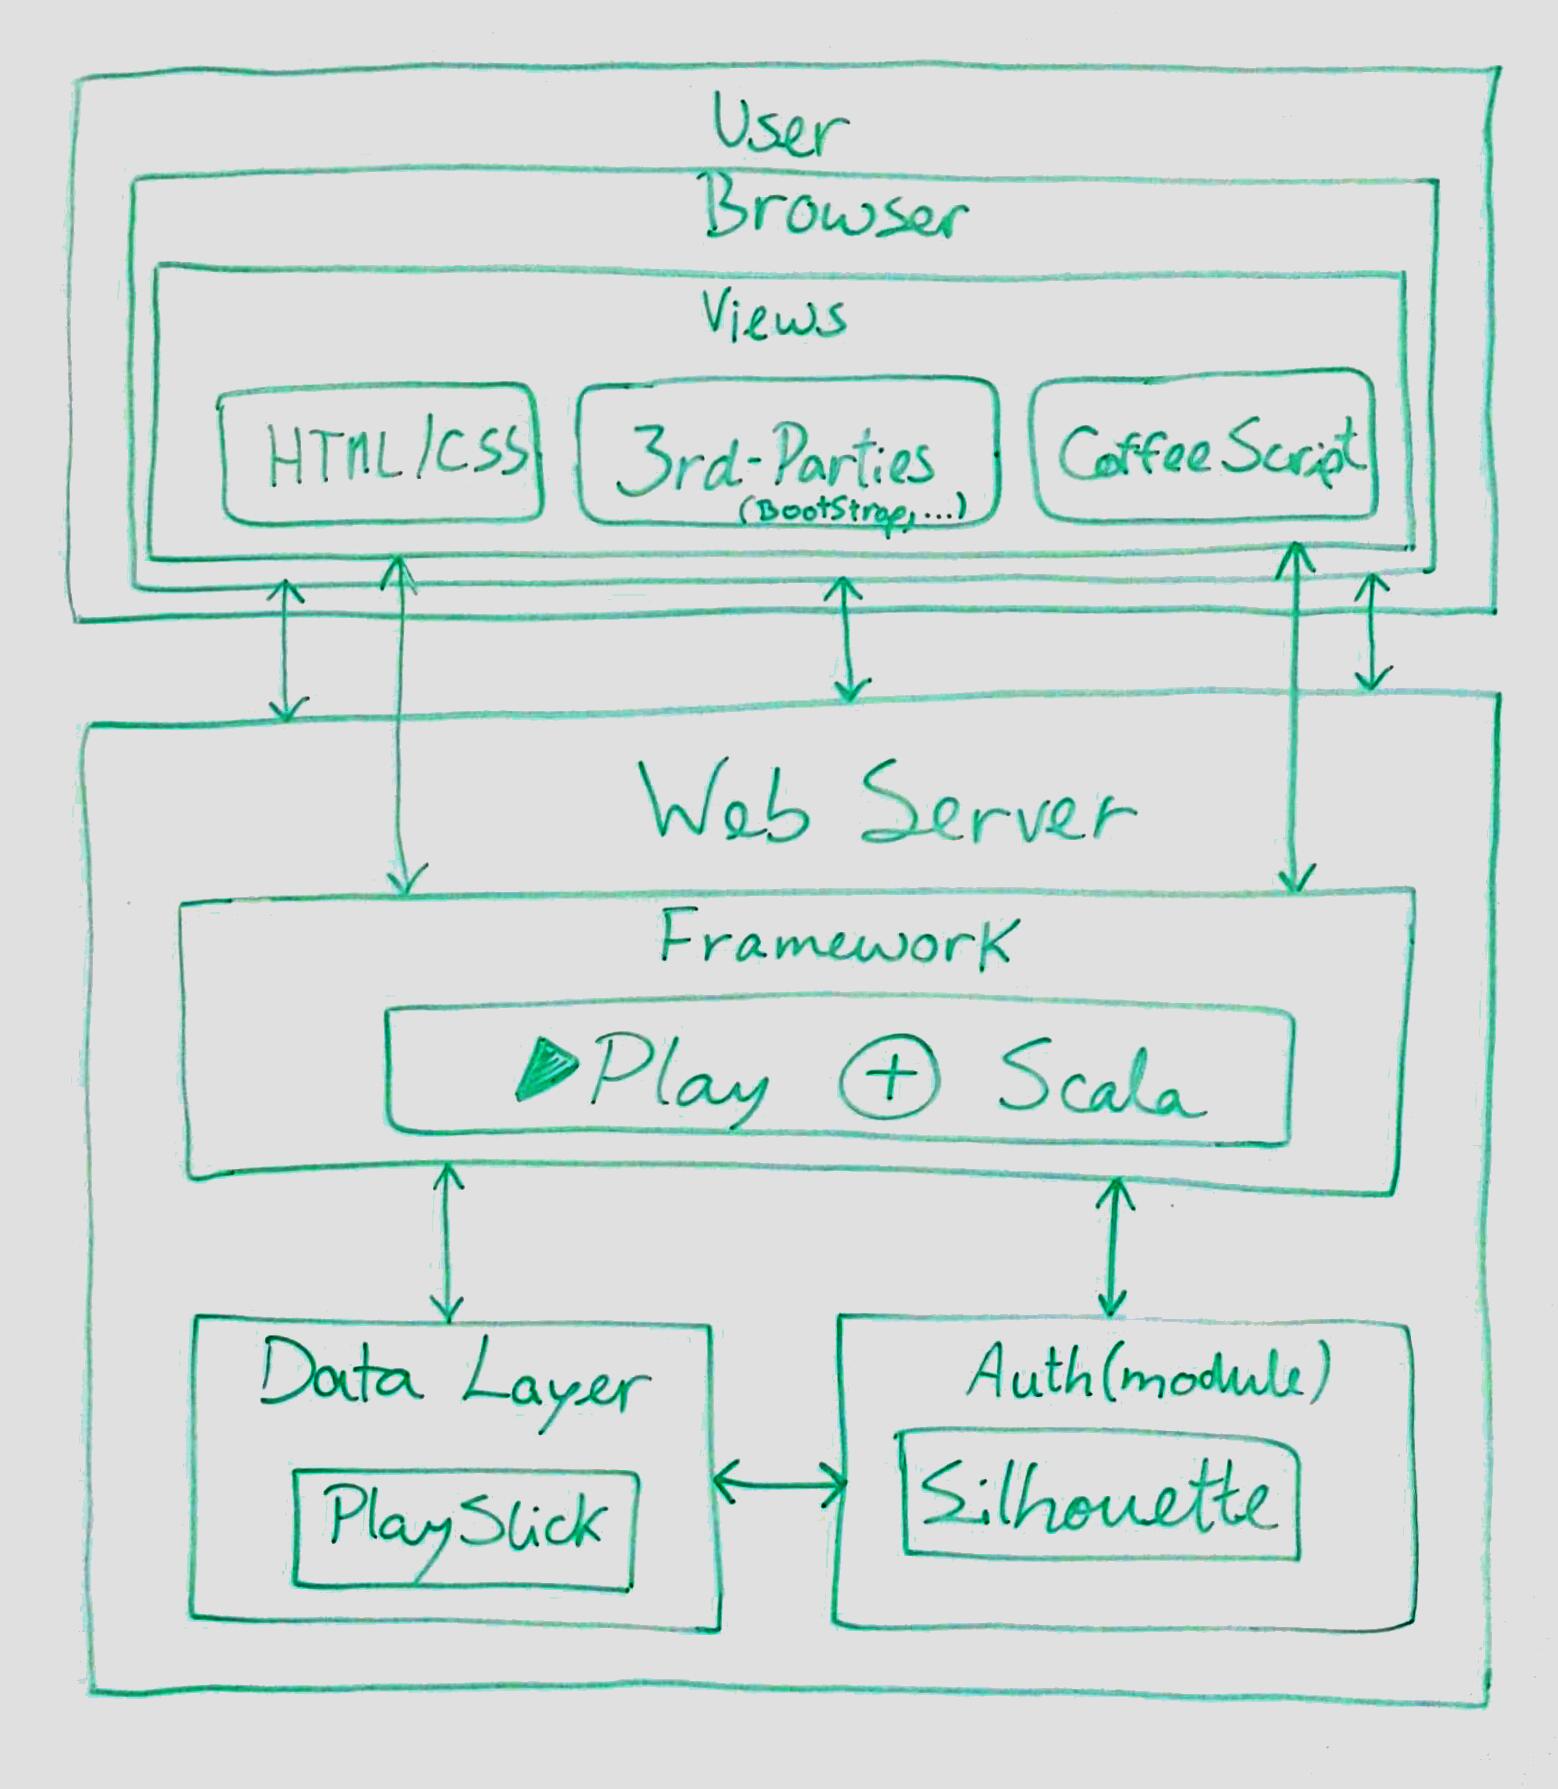 User
Browser
Views
HTML/CSS
3rd-Parties
(BootStrap,...)
CoffeeScript
Web Server
Framework
Play + Scala
Data Layer
PlaySlick
Auth(module)
Silhouette